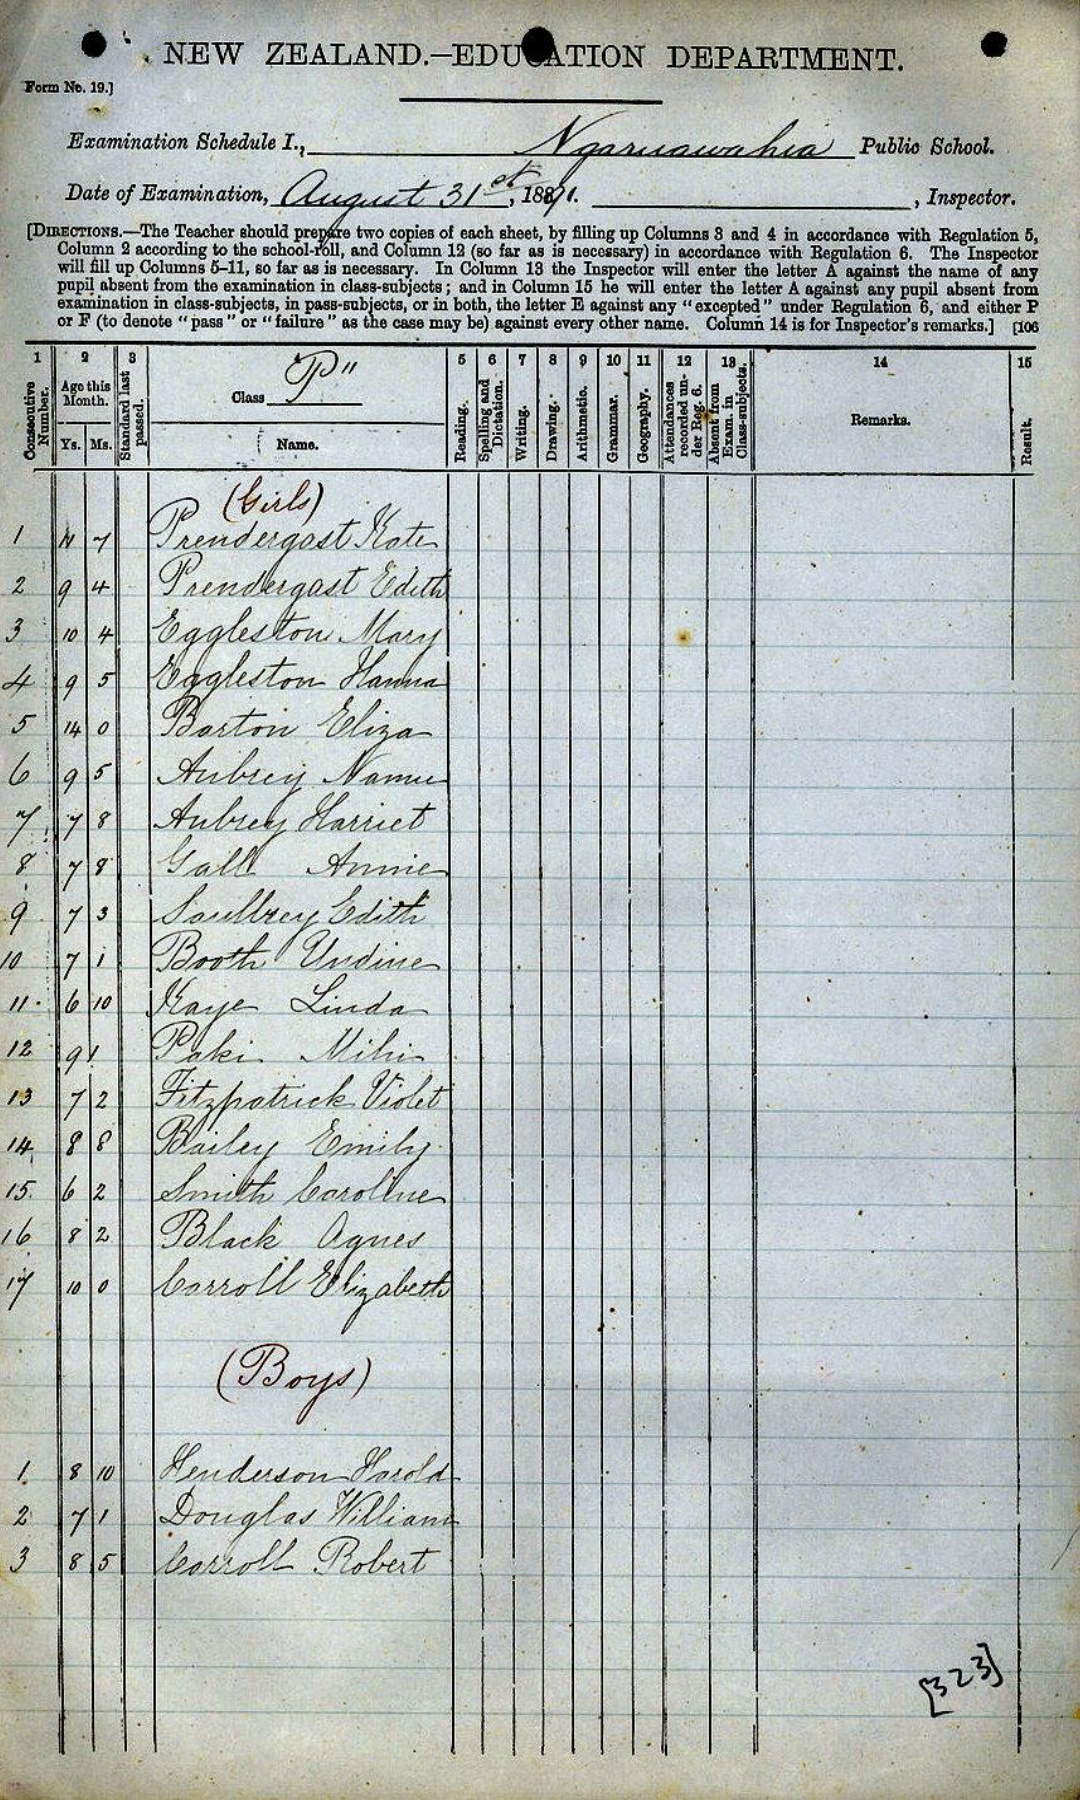 NEW ZEALAND.—EDUCATION DEPARTMENT.
Form No. 19.]
Examination Schedule I., Ngaruawahia Public School.
Date of Examination, August 31st, 1891. , Inspector.
[DIRECTIONS.—The Teacher should prepare two copies of each sheet, by filling up Columns 3 and 4 in accordance with Regulation 5,
Column 2 according to the school-roll, and Column 12 (so far as is necessary) in accordance with Regulation 6. The Inspector
will fill up Columns 5–11, so far as is necessary. In Column 13 the Inspector will enter the letter A against the name of any
pupil absent from the examination in class-subjects; and in Column 15 he will enter the letter A against any pupil absent from
examination in class-subjects, in pass-subjects, or in both, the letter E against any "excepted" under Regulation 6, and either P
or F (to denote "pass" or "failure" as the case may be) against every other name. Column 14 is for Inspector's remarks.] [106
1 2 3 "P" 5 6 7 8 9 10 11 12 13 14 15
Consecutive Number. Age this Month. Ys. Ms. Standard last passed. Class Name. Reading. Spelling and Dictation. Writing. Drawing. Arithmetic. Grammar. Geography. Attendances recorded under Reg. 6. Absent from Exam. in Class-subjects. Remarks. Result.
(Girls)
1 7 Prendergast Kate
2 9 4 Prendergast Edith
3 10 4 Eggleston Mary
4 9 5 Eggleston Hanna
5 14 0 Barton Eliza
6 9 5 Aubrey
7 7 8 Aubrey Harriet
8 7 8 Gall Annie
9 7 3 Saulbrey Edith
10 7 1 Booth Undine
11 6 10 Kaye Linda
12 9 1 Paki Mihi
13 7 2 Fitzpatrick Violet
14 8 8 Bailey Emily
15 6 2 Smith Caroline
16 8 2 Black Agnes
17 10 0 Carroll Elizabeth
(Boys)
1 8 10 Henderson Harold
2 7 1 Douglas William
3 8 5 Carroll Robert
[323]